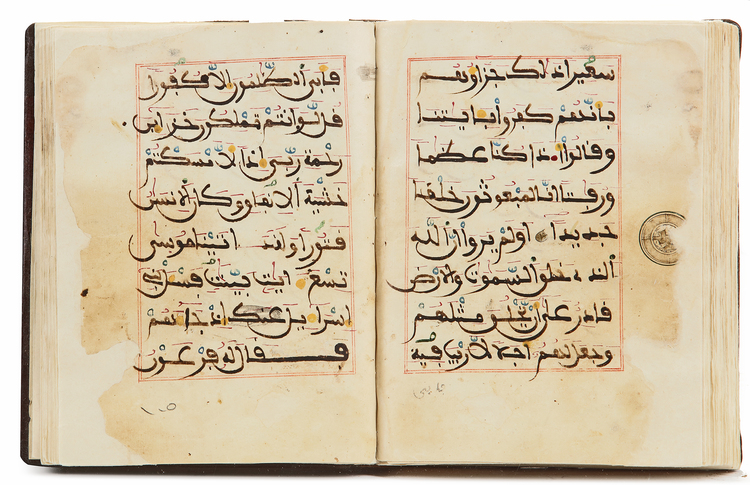 سعيرا ذلك جزاؤهم
بانهم كفروا بايتنا
وقالوا اذا كنا عظما
ورفتا انا لمبعوثون خلقا
جديدا اولم يروا ان الله
الذي خلق السموت والارض
قادر على ان يخلق مثلهم
وجعل لهم اجلا لا ريب فيه
فابى الظلمون الا كفورا
قل لو انتم تملكون خزاين
رحمة ربي اذا لامسكتم
خشية الانفاق وكان الانسن
قتورا ولقد اتينا موسى
تسع ايت بينت فسل بني
اسرايل اذ جاءهم
فقال له فرعون